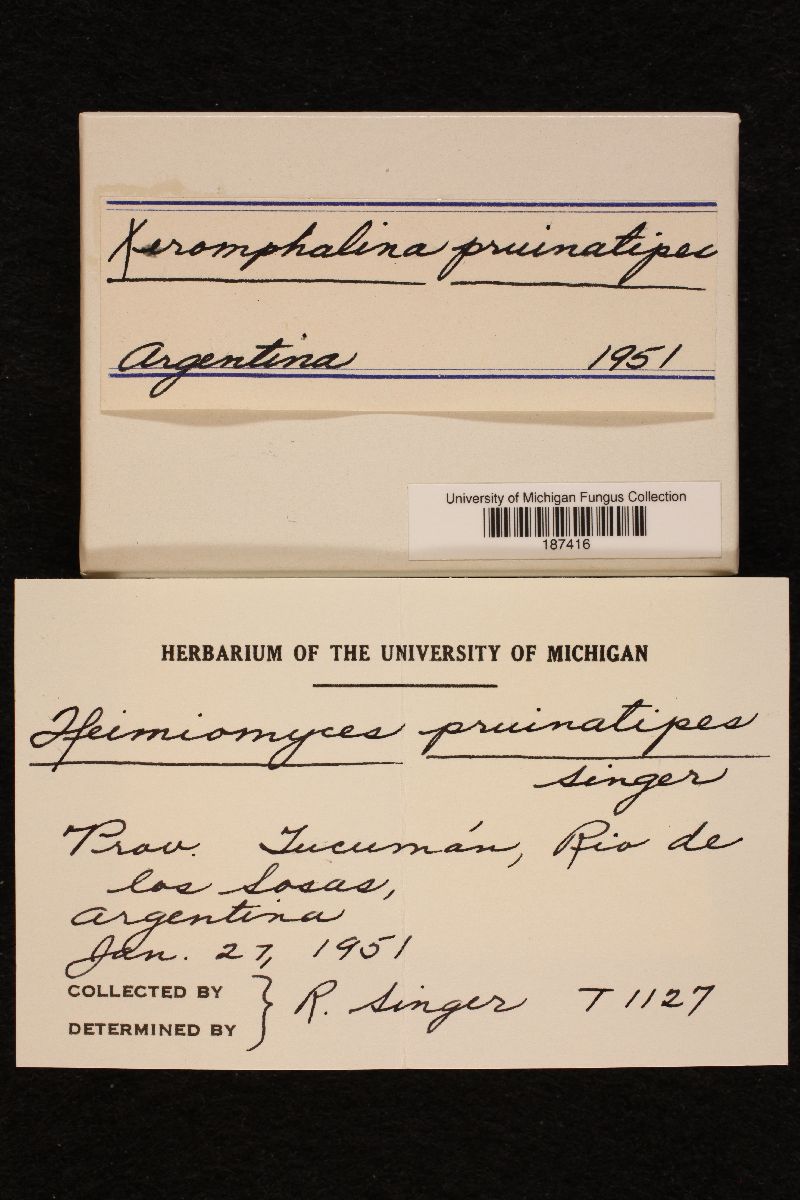 Xeromphalina pruinatipes
Argentina 1951
University of Michigan Fungus Collection
187416
HERBARIUM OF THE UNIVERSITY OF MICHIGAN
Heimiomyces pruinatipes
Singer
Prov. Tucumán, Rio de
los Sosas,
Argentina
Jan. 27, 1951
COLLECTED BY
DETERMINED BY } R. Singer T 1127